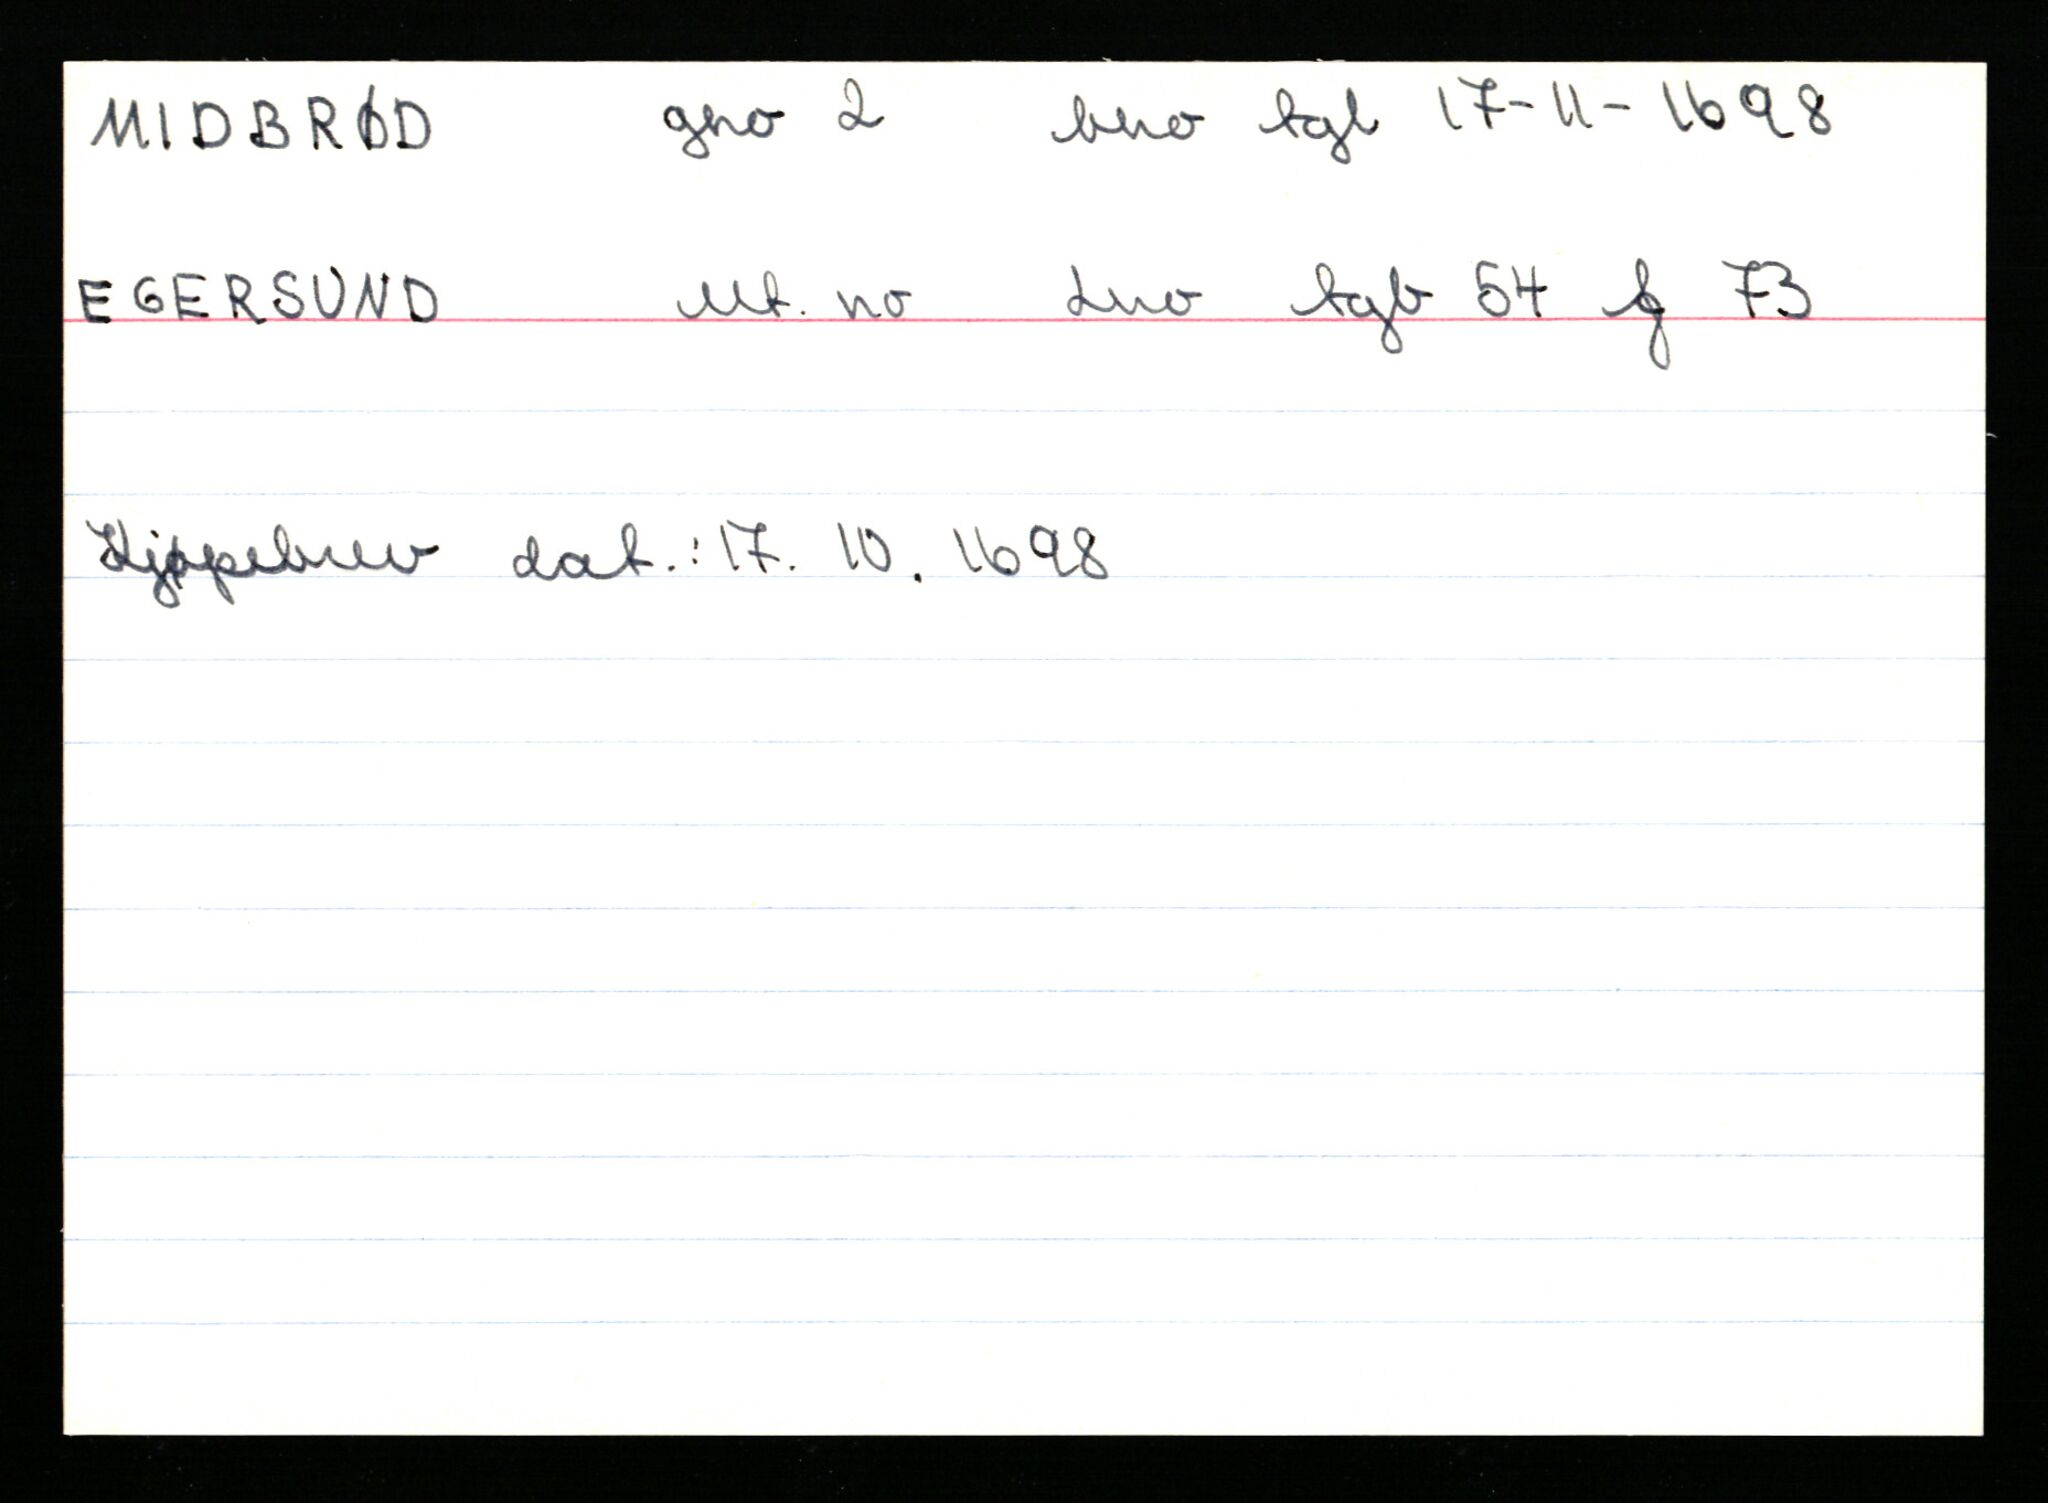 MIDBRØD gno 2 bno tgl 17-11-1698
EGERSUND Mt. no Lno tgb 54 f 73
Kjøpebrev dat.: 17. 10. 1698